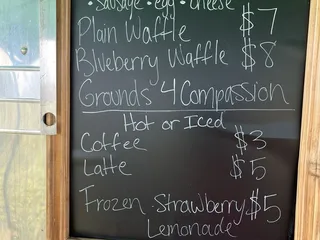 • Sausage • egg • cheese
Plain Waffle $7
Blueberry Waffle $8
Grounds 4 Compassion
Hot or Iced
Coffee $3
Latte $5
Frozen Strawberry $5
Lemonade